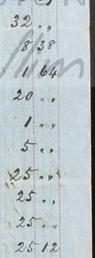 32 〃 〃
8 38
1 64
20 〃 〃
1 〃 〃
5 〃 〃
25 〃 〃
25 〃 〃
25 〃 〃
25 12